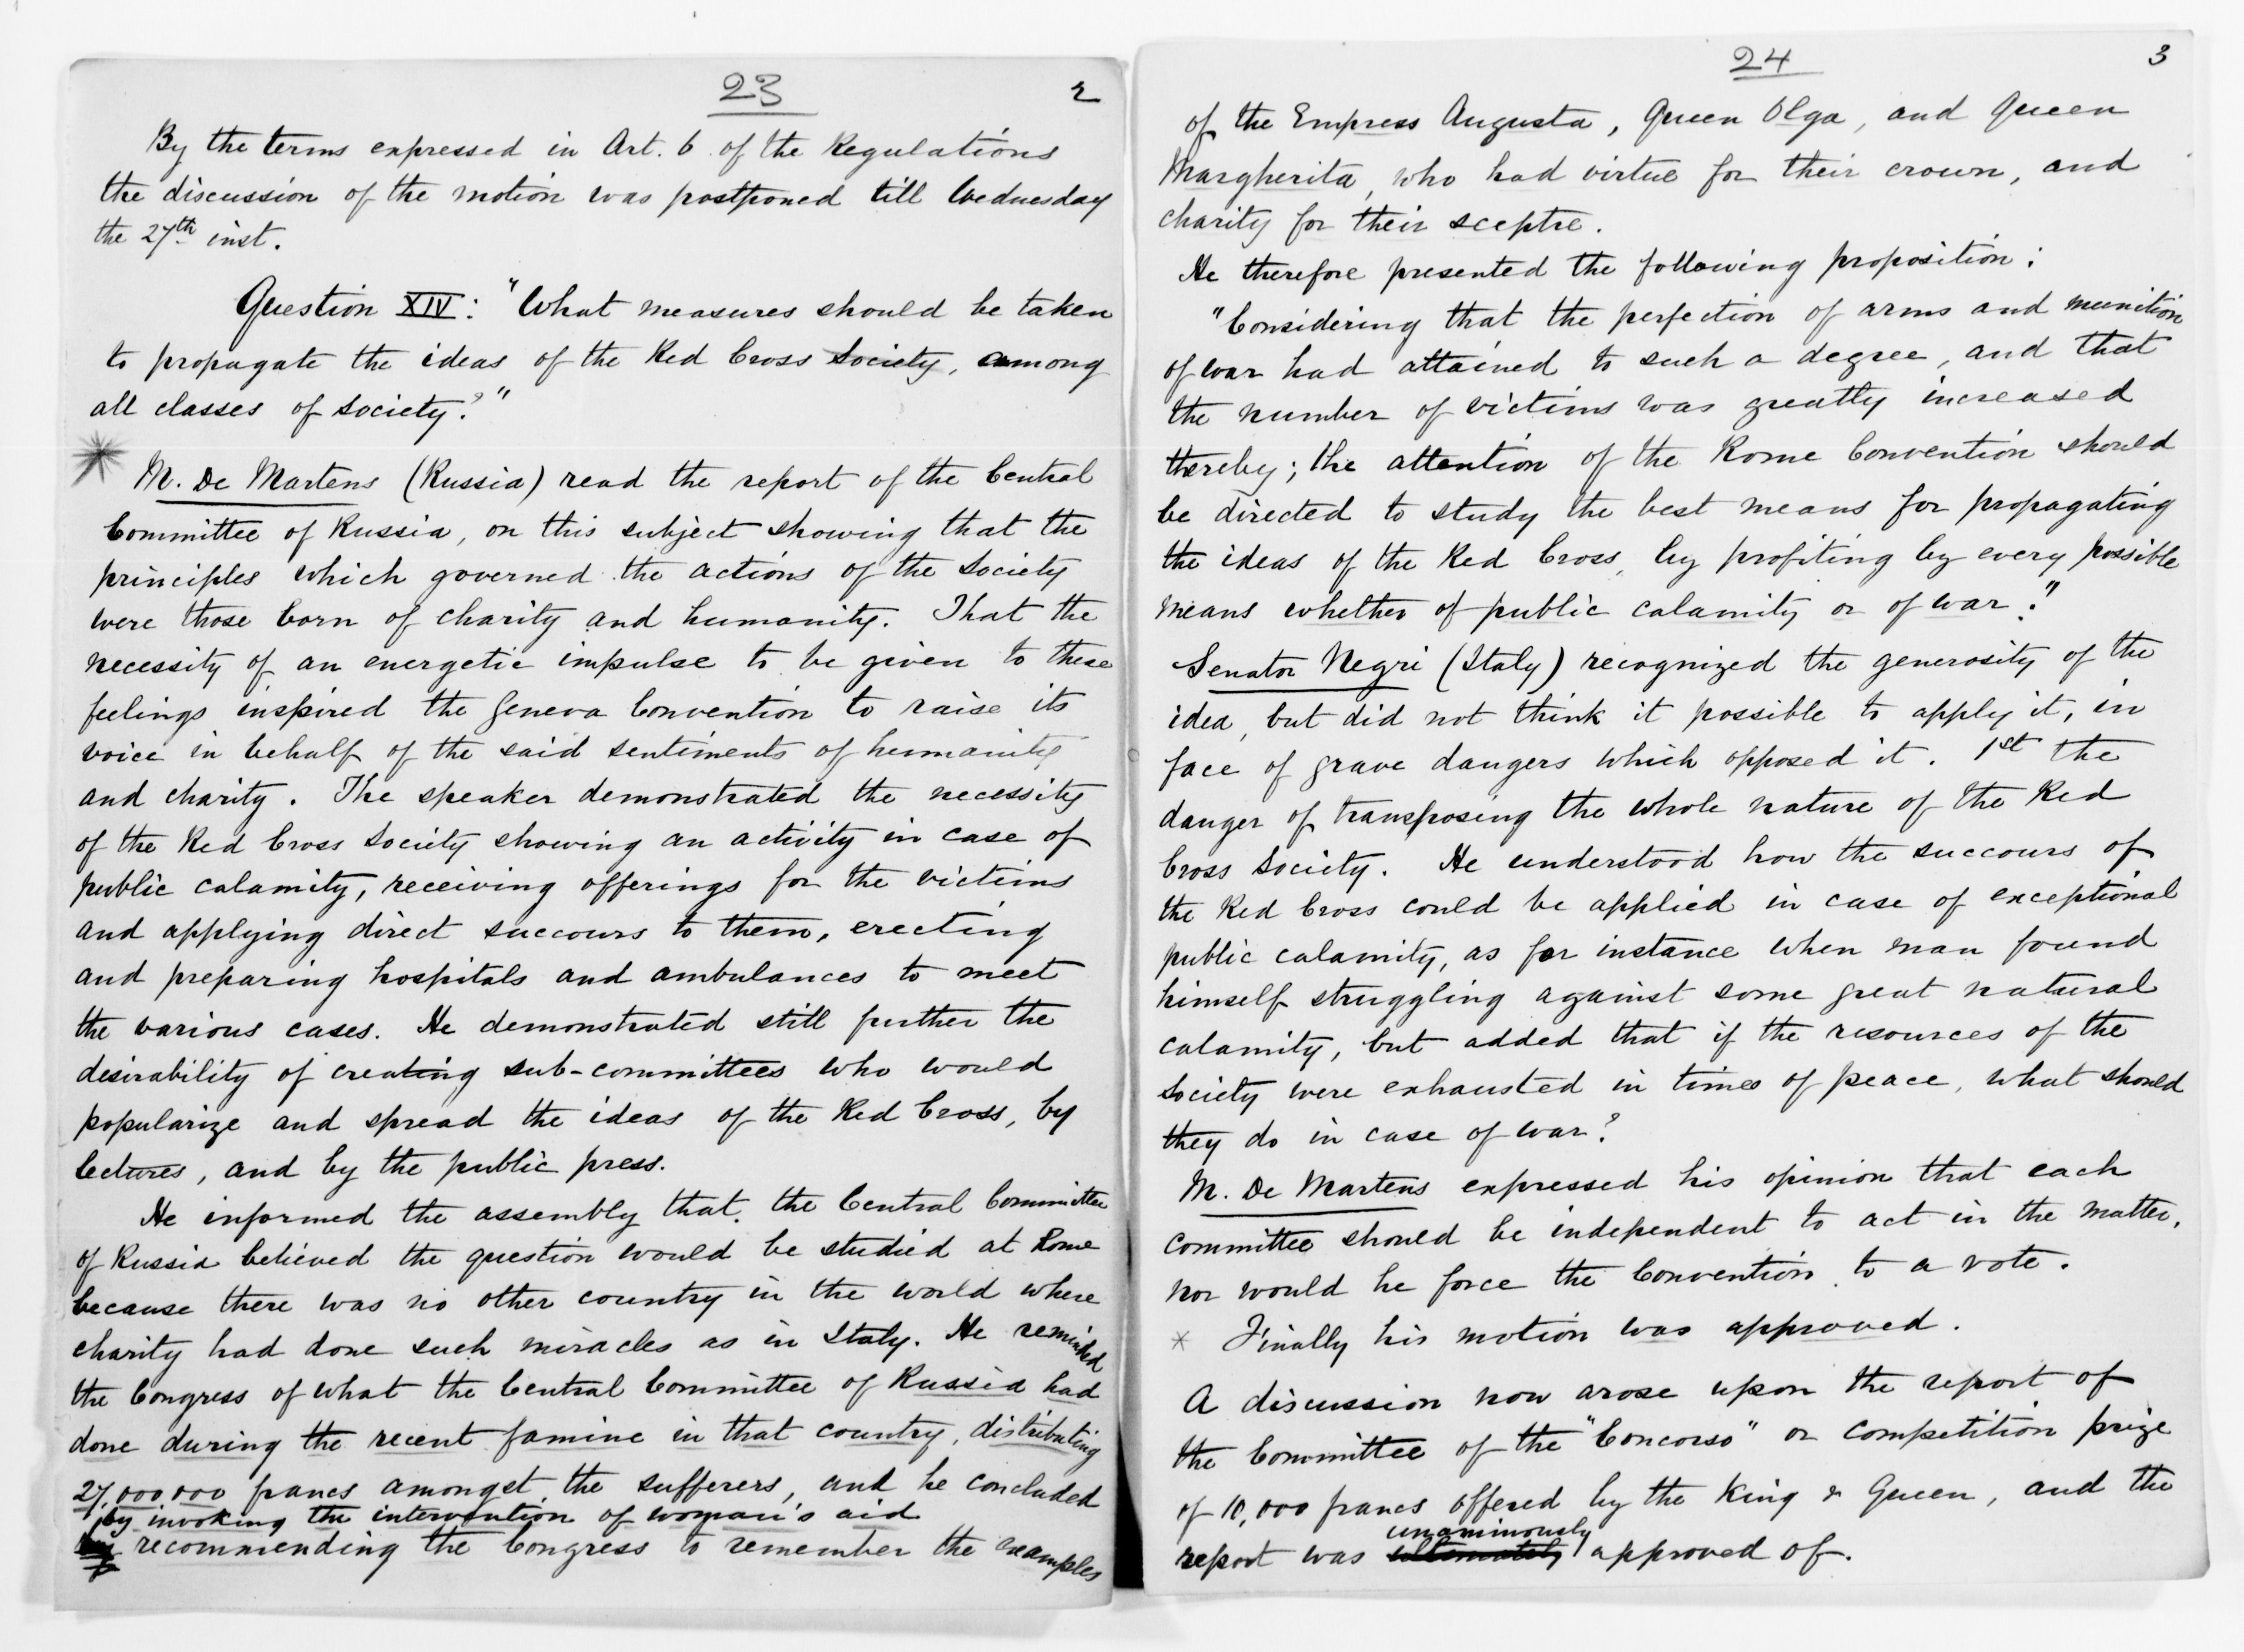 23
2
By the terms expressed in Art. 6 of the Regulations
the discussion of the motion was postponed till Wednesday
the 27th inst.
Question XIV: "What measures should be taken
to propagate the ideas of the Red Cross Society, among
all classes of Society?"
M. De Martens (Russia) read the report of the Central
Committee of Russia, on this subject showing that the
principles which governed the actions of the Society
were those born of charity and humanity. That the
necessity of an energetic impulse to be given to these
feelings inspired the Geneva Convention to raise its
voice in behalf of the said sentiments of humanity
and charity. The speaker demonstrated the necessity
of the Red Cross Society showing an activity in case of
public calamity, receiving offerings for the victims
and applying direct succours to them, erecting
and preparing hospitals and ambulances to meet
the various cases. He demonstrated still further the
desirability of creating sub-committees who would
popularize and spread the ideas of the Red Cross, by
lectures, and by the public press.
He informed the assembly that the Central Committee
of Russia believed the question would be studied at Rome
because there was no other country in the world where
charity had done such miracles as in Italy. He reminded
the Congress of what the Central Committee of Russia had
done during the recent famine in that country, distributing
27,000000 francs amongst the sufferers, and he concluded
by invoking the intervention of woman's aid
recommending the Congress to remember the examples
24
3
of the Empress Augusta, Queen Olga, and Queen
Margherita, who had virtue for their crown, and
charity for their sceptre.
He therefore presented the following proposition:
"Considering that the perfection of arms and munition
of war had attained to such a degree, and that
the number of victims was greatly increased
thereby; the attention of the Rome Convention should
be directed to study the best means for propagating
the ideas of the Red Cross, by profiting by every possible
means whether of public calamity or of war."
Senator Negri (Italy) recognized the generosity of the
idea, but did not think it possible to apply it, in
face of grave dangers which opposed it. 1st the
danger of transposing the whole nature of the Red
Cross Society. He understood how the succours of
the Red Cross could be applied in case of exceptional
public calamity, as for instance when man found
himself struggling against some great natural
calamity, but added that if the resources of the
Society were exhausted in times of peace, what should
they do in case of war?
M. De Martens expressed his opinion that each
committee should be independent to act in the matter,
nor would he force the Convention to a vote.
* Finally his motion was approved.
A discussion now arose upon the report of
the Committee of the "Concorso" or competition prize
of 10,000 francs offered by the King & Queen, and the
unaminously
report was ultimately approved of.